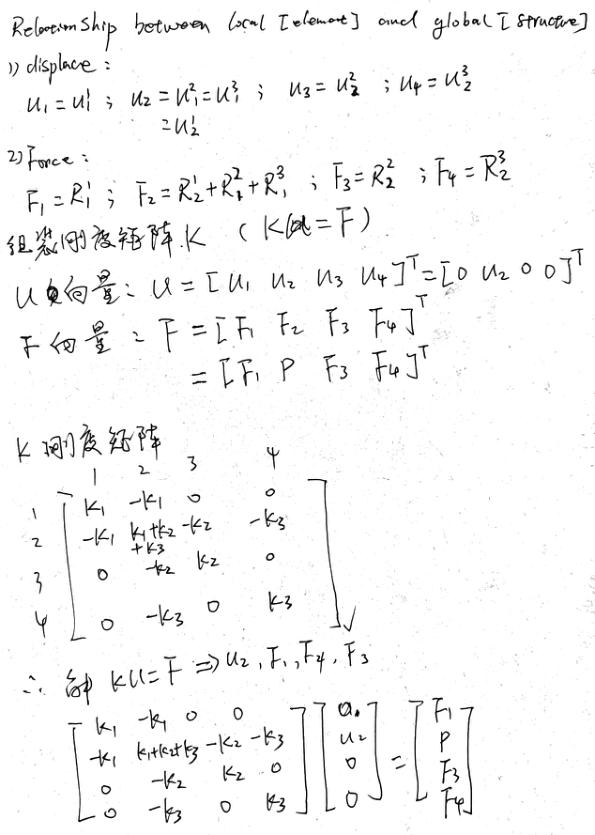 Relationship between local [element] and global [structure]
1) displace:
u₁ = u₁¹ ; u₂ = u₁² = u₁³ ; u₃ = u₂² ; u₄ = u₂³
= u₂¹
2) Force:
F₁ = R₁¹ ; F₂ = R₂¹ + R₁² + R₁³ ; F₃ = R₂² ; F₄ = R₂³
组装刚度矩阵K (Ku = F)
U向量: U = [u₁ u₂ u₃ u₄]ᵀ = [0 u₂ 0 0]ᵀ
F向量: F = [F₁ F₂ F₃ F₄]ᵀ
= [F₁ P F₃ F₄]ᵀ
K刚度矩阵
1 2 3 4
1 k₁ -k₁ 0 0
2 -k₁ k₁+k₂+k₃ -k₂ -k₃
3 0 -k₂ k₂ 0
4 0 -k₃ 0 k₃
∴ 解 KU = F ⇒ u₂, F₁, F₄, F₃
[k₁ -k₁ 0 0] [0] [F₁]
[-k₁ k₁+k₂+k₃ -k₂ -k₃] [u₂] = [P]
[0 -k₂ k₂ 0] [0] [F₃]
[0 -k₃ 0 k₃] [0] [F₄]